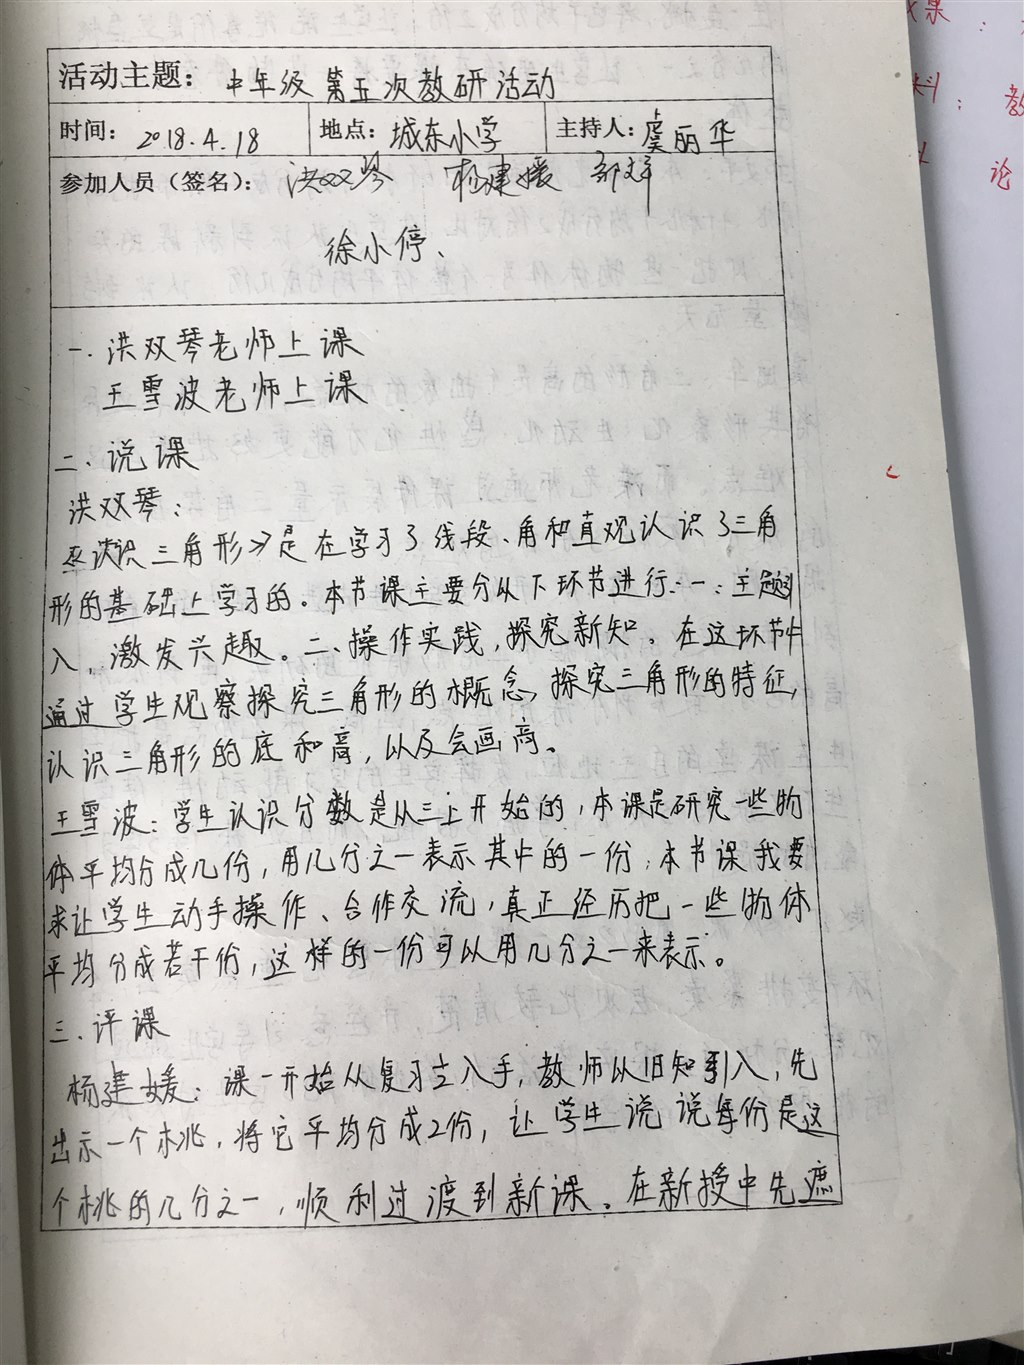 活动主题：中年级第五次教研活动
时间：2018.4.18 地点：城东小学 主持人：虞丽华
参加人员（签名）：洪双琴 杨建媛
徐小停、
一.洪双琴老师上课
王雪波老师上课
二、说课
洪双琴：
《认识三角形》是在学习了线段、角和直观认识了三角
形的基础上学习的。本节课主要分从下环节进行.一：主题引
入，激发兴趣。二、操作实践，探究新知。在这环节中
通过学生观察探究三角形的概念，探究三角形的特征，
认识三角形的底和高，以及会画高。
王雪波：学生认识分数是从三上开始的，本课是研究一些物
体平均分成几份，用几分之一表示其中的一份，本节课我要
求让学生动手操作、合作交流，真正经历把一些物体
平均分成若干份，这样的一份可以用几分之一来表示。
三.评课
杨建媛：课一开始从复习入手，教师从旧知引入，先
出示一个桃，将它平均分成2份，让学生说说每份是这
个桃的几分之一，顺利过渡到新课。在新授中先遮
果：
料：教
论